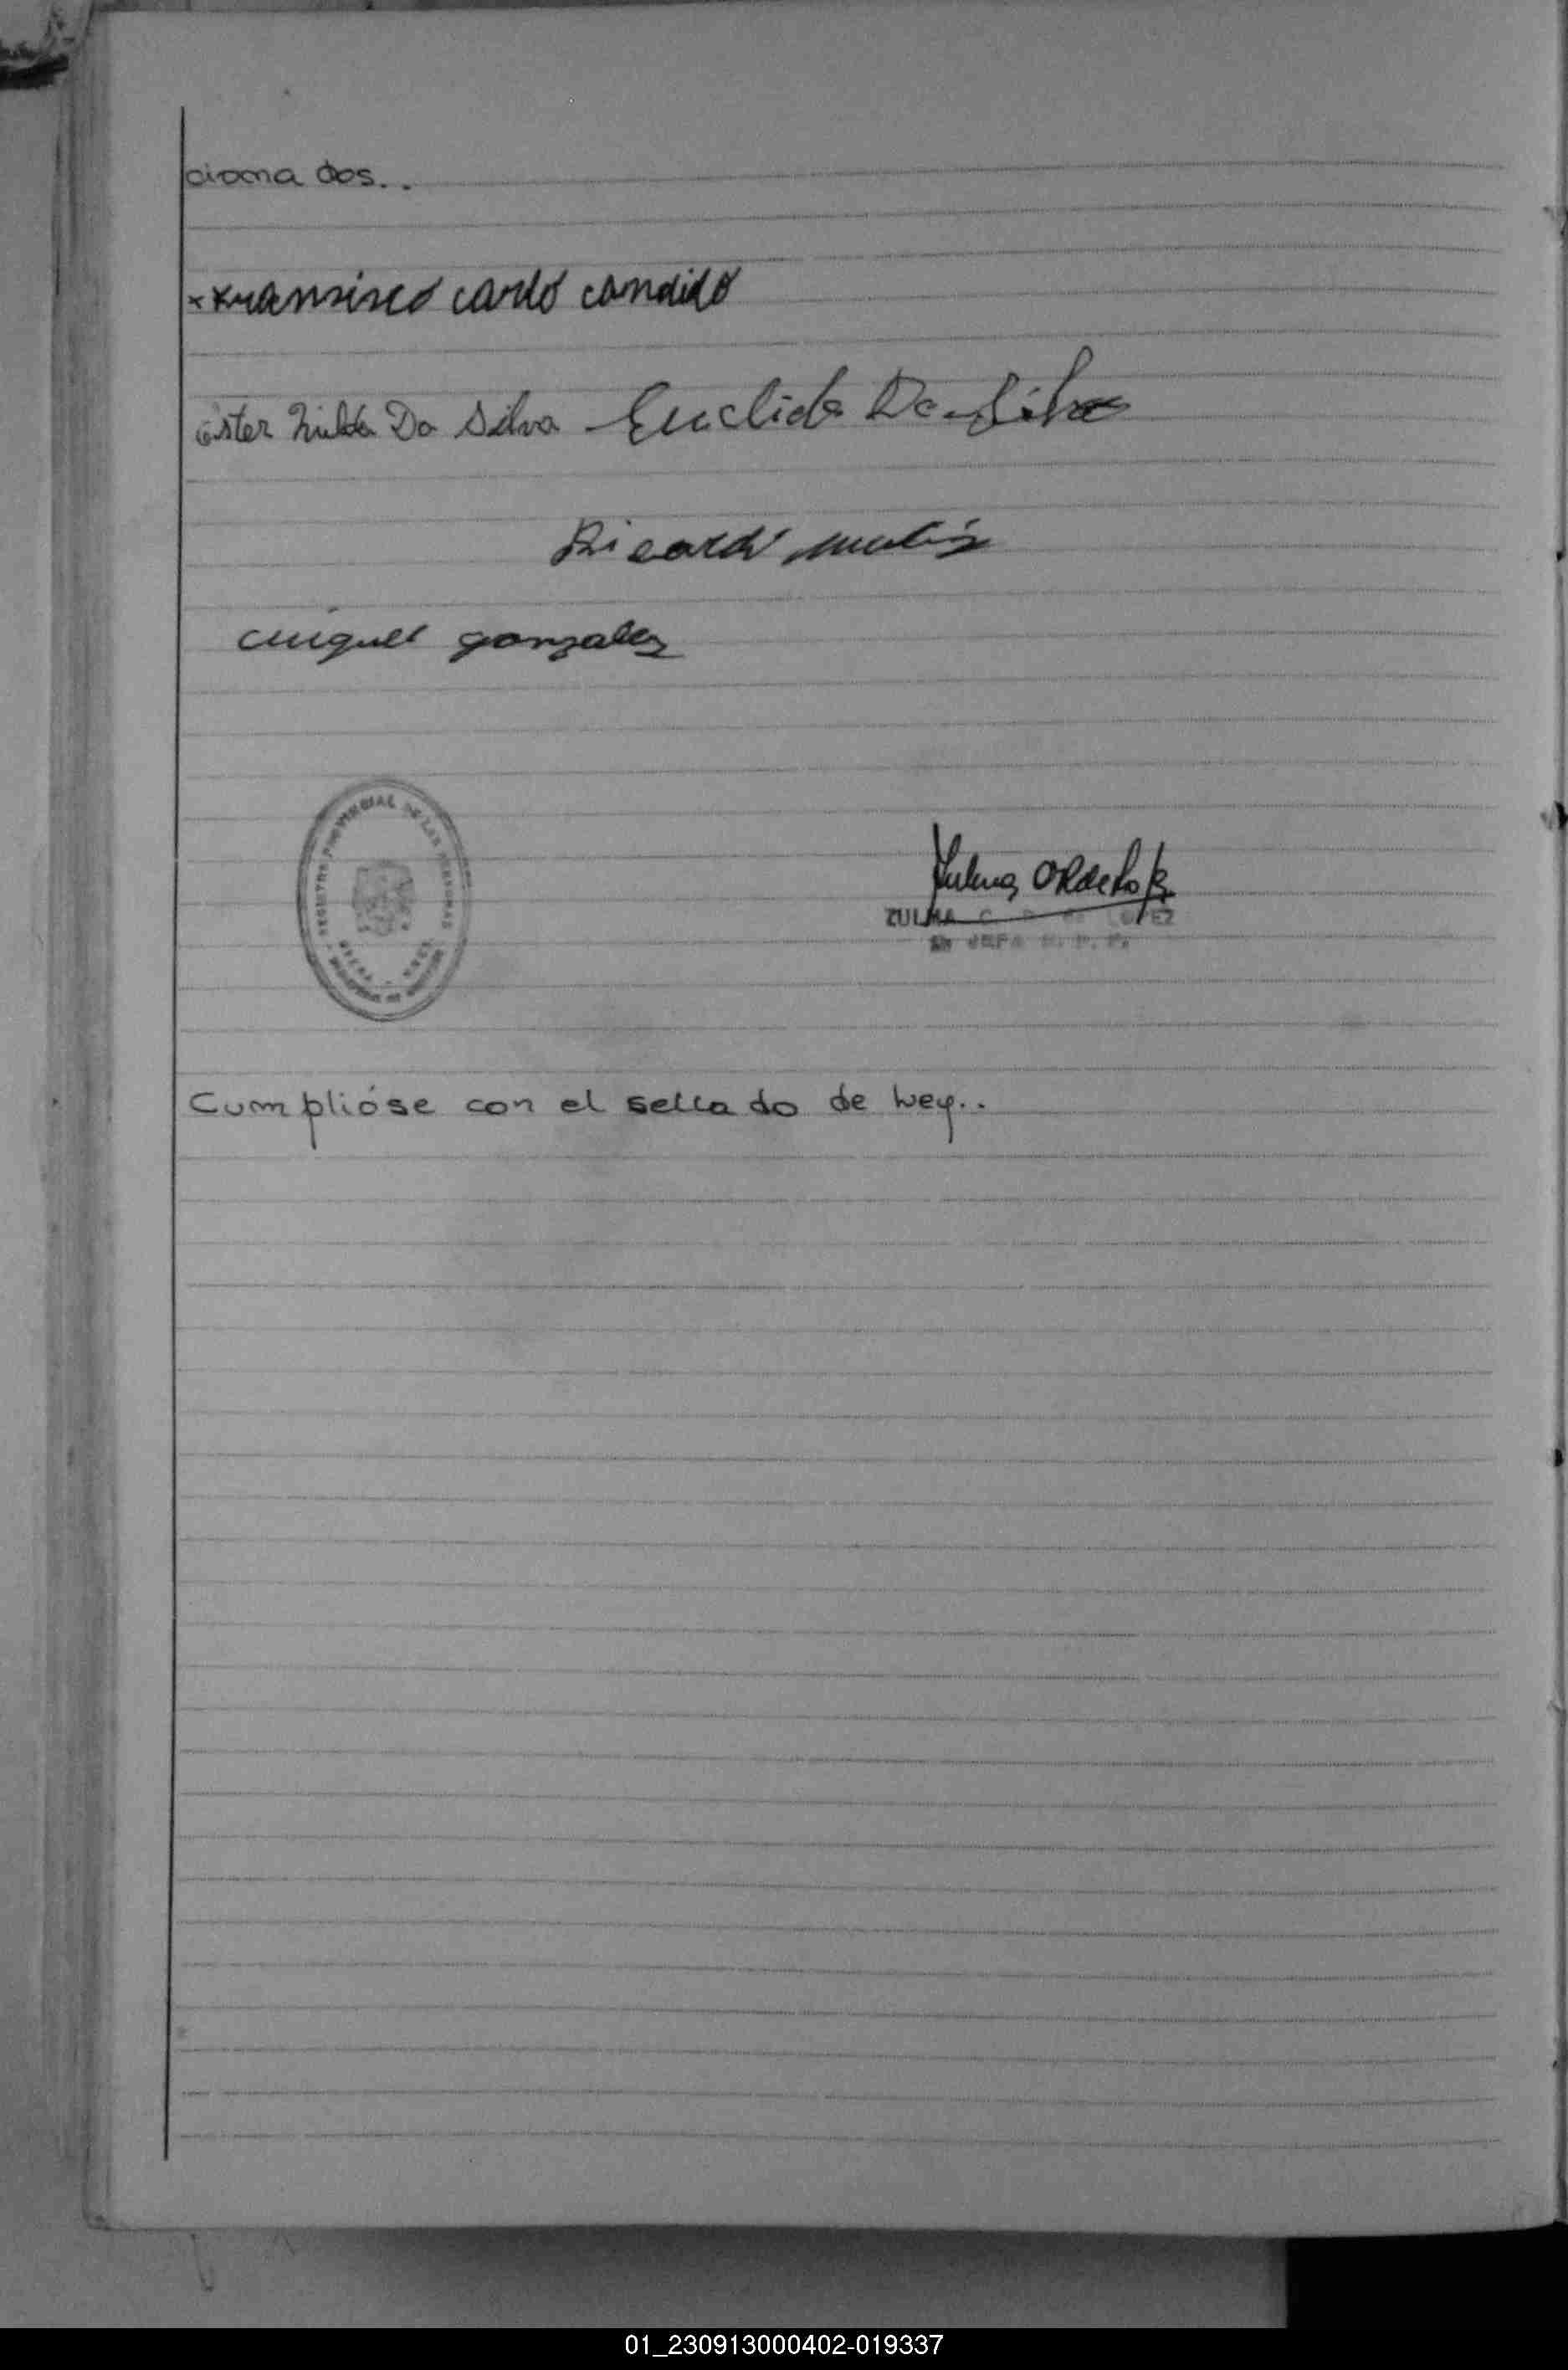 cionados..
x Kransisco carlo candido
ester hilda Da Silva Euclide Da Silva
Ricardo
miguel gonzalez
REGISTRO PROVINCIAL DE LAS PERSONAS
ZULMA C. LOPEZ
JEFA R. P. P.
Cumplióse con el sellado de Ley..
01_230913000402-019337